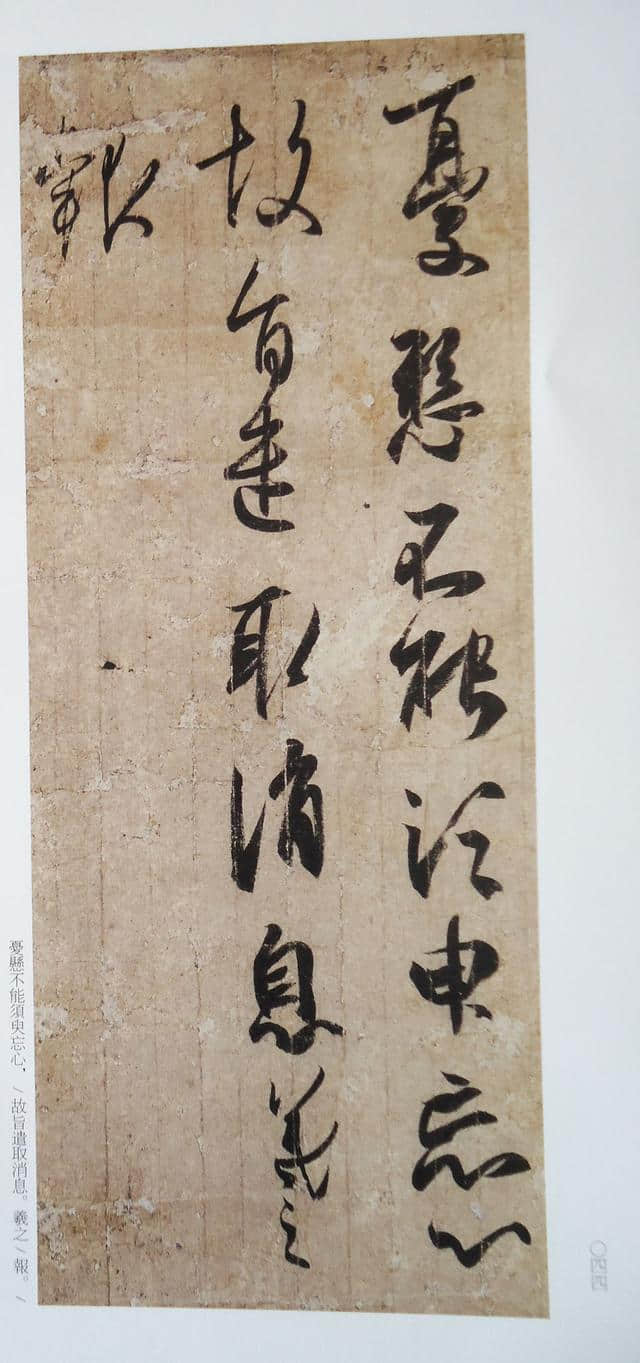 憂懸不能須臾忘心
故旨遣取消息羲之
報
憂懸不能須臾忘心，/故旨遣取消息。羲之/報。/
〇四四